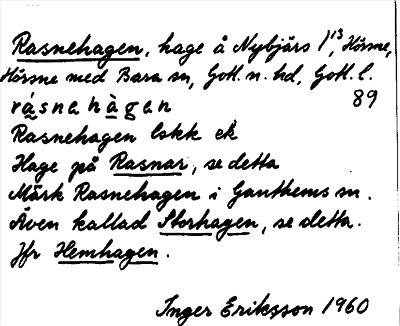 Rasnehagen, hage å Nybjärs 1¹³, Hörsne,
Hörsne med Bara sn, Gotl. n. hd, Gotl. l.
rásnahàgen 89
Rasnehagen lokk ek
Hage på Rasnar, se detta
Märk Rasnehagen i Ganthems sn.
Även kallad Storhagen, se detta.
Jfr Hemhagen.
Inger Eriksson 1960